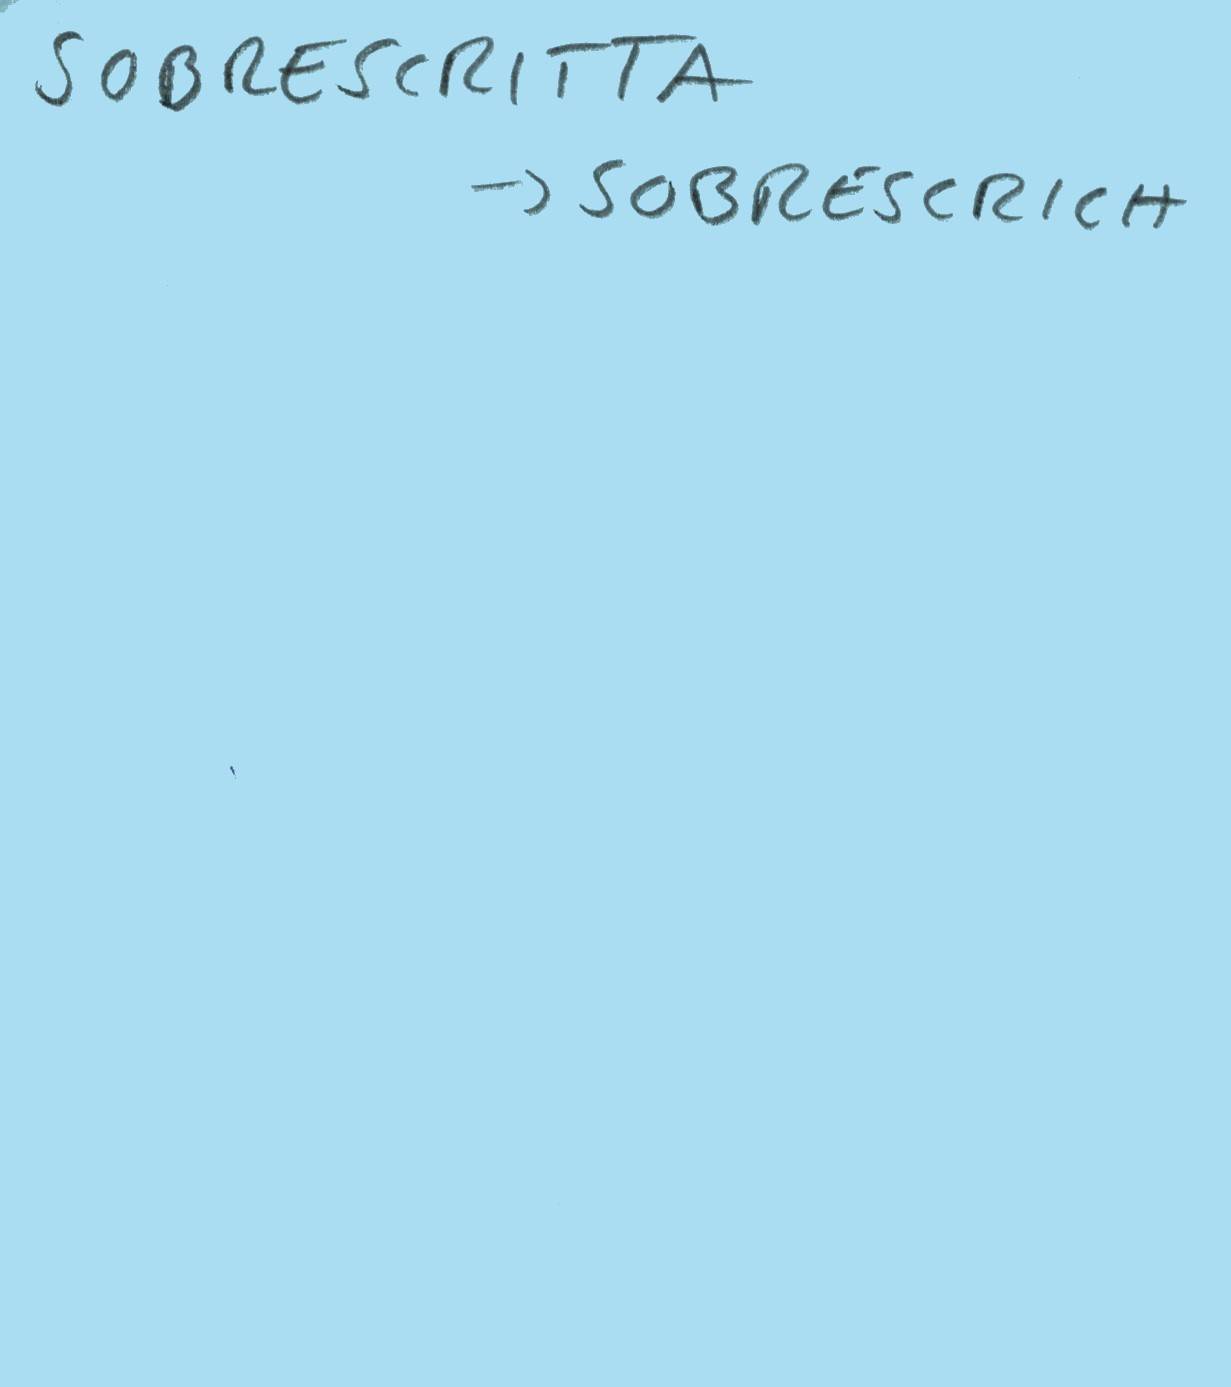 SOBRESCRITTA
→ SOBRESCRICH